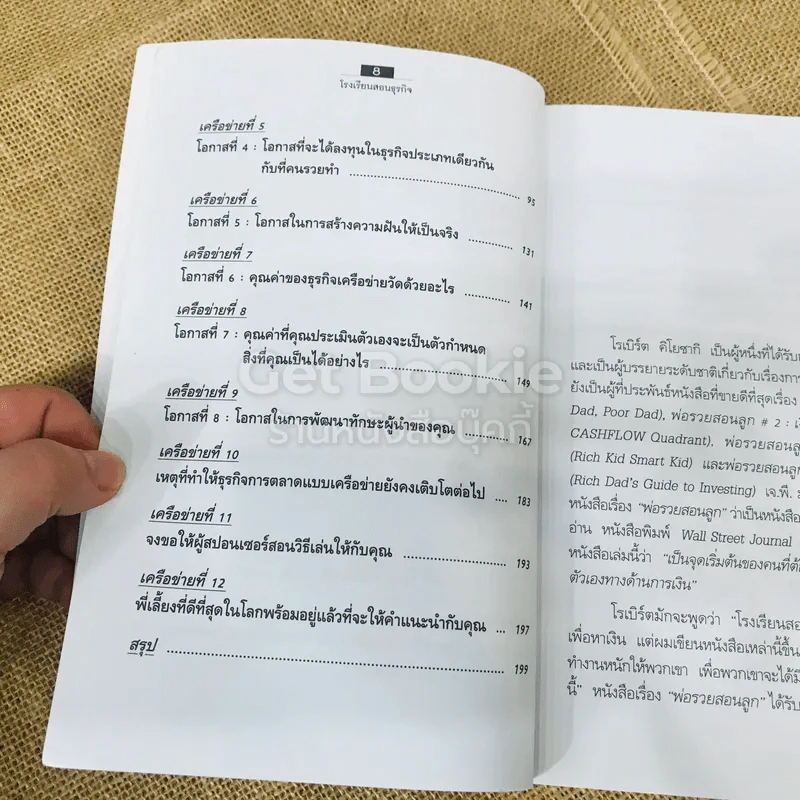 8
โรงเรียนสอนธุรกิจ
เครือข่ายที่ 5
โอกาสที่ 4 : โอกาสที่จะได้ลงทุนในธุรกิจประเภทเดียวกัน
กับที่คนรวยทำ .......................................... 95
เครือข่ายที่ 6
โอกาสที่ 5 : โอกาสในการสร้างความฝันให้เป็นจริง ............ 131
เครือข่ายที่ 7
โอกาสที่ 6 : คุณค่าของธุรกิจเครือข่ายวัดด้วยอะไร ............ 141
เครือข่ายที่ 8
โอกาสที่ 7 : คุณค่าที่คุณประเมินตัวเองจะเป็นตัวกำหนด
สิ่งที่คุณเป็นได้อย่างไร .................................. 149
เครือข่ายที่ 9
โอกาสที่ 8 : โอกาสในการพัฒนาทักษะผู้นำของคุณ ............ 167
เครือข่ายที่ 10
เหตุที่ทำให้ธุรกิจการตลาดแบบเครือข่ายยังคงเติบโตต่อไป .... 183
เครือข่ายที่ 11
จงขอให้ผู้สปอนเซอร์สอนวิธีเล่นให้กับคุณ ...................... 193
เครือข่ายที่ 12
พี่เลี้ยงที่ดีที่สุดในโลกพร้อมอยู่แล้วที่จะให้คำแนะนำกับคุณ ... 197
สรุป ................................................................ 199
Get Bookie
ร้านหนังสือบุ๊คกี้
โรเบิร์ต คิโยซากิ เป็นผู้หนึ่งที่ได้รับ
และเป็นผู้บรรยายระดับชาติเกี่ยวกับเรื่องการ
ยังเป็นผู้ที่ประพันธ์หนังสือที่ขายดีที่สุดเรื่อง
Dad, Poor Dad), พ่อรวยสอนลูก # 2 :
CASHFLOW Quadrant), พ่อรวยสอนลู
(Rich Kid Smart Kid) และพ่อรวยสอนลูก
(Rich Dad's Guide to Investing) เจ.พี.
หนังสือเรื่อง "พ่อรวยสอนลูก" ว่าเป็นหนังสือ
อ่าน หนังสือพิมพ์ Wall Street Journal
หนังสือเล่มนี้ว่า "เป็นจุดเริ่มต้นของคนที่ต้
ตัวเองทางด้านการเงิน"
โรเบิร์ตมักจะพูดว่า "โรงเรียนสอ
เพื่อหาเงิน แต่ผมเขียนหนังสือเหล่านี้ขึ้น
ทำงานหนักให้พวกเขา เพื่อพวกเขาจะได้มี
นี้" หนังสือเรื่อง "พ่อรวยสอนลูก" ได้รับ